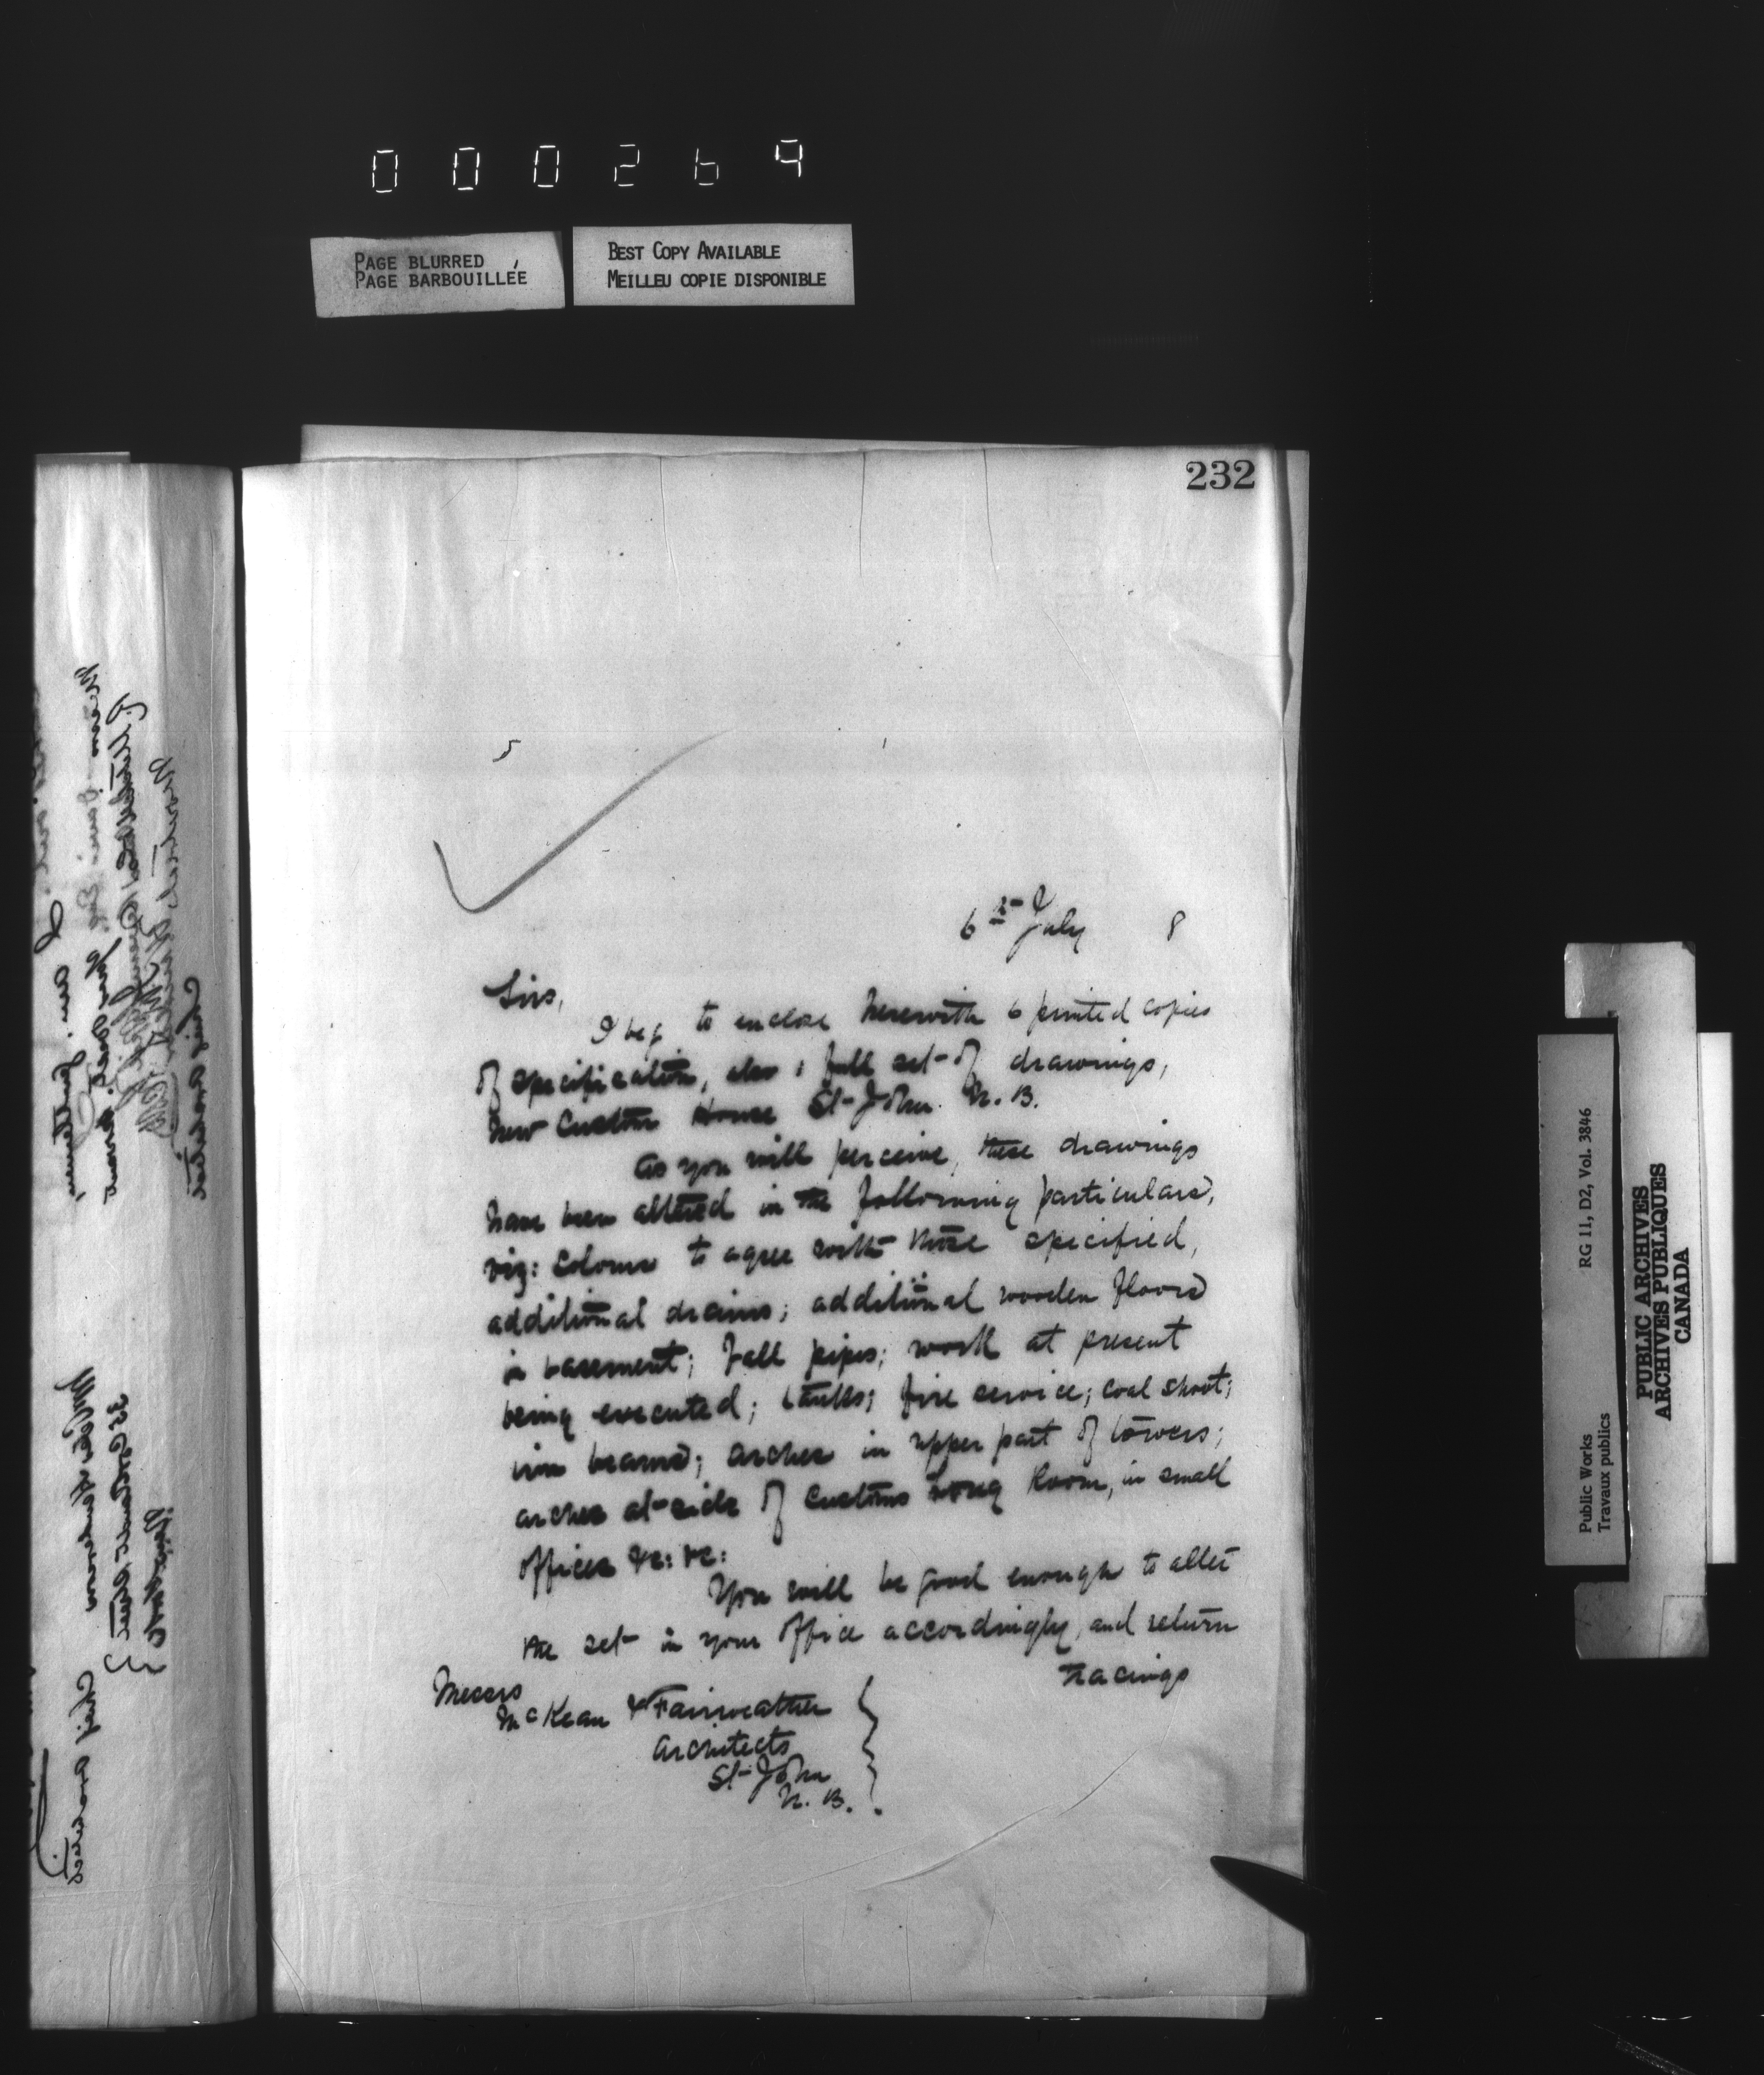 000269
PAGE BLURRED
PAGE BARBOUILLÉE
BEST COPY AVAILABLE
MEILLEU COPIE DISPONIBLE
232
5
6th July 8
Sirs,
I beg to enclose herewith 6 printed copies
of specification, also 1 full set of drawings,
New Custom House St John. N.B.
As you will perceive, these drawings
have been altered in the following particulars,
viz: Colours to agree with those specified,
additional drains; additional wooden floors
in basement; Fall pipes; work at present
being executed; tanks; fire service; coal shoot;
iron beams; arches in upper part of towers;
arches at side of Customs Long Room, in small
offices &c: &c:
You will be good enough to alter
the set in your office accordingly, and return
tracings
Messrs
McKean & Fairweather
Architects
St John
N. B.
Public Works
Travaux publics
RG 11, D2, Vol. 3846
PUBLIC ARCHIVES
ARCHIVES PUBLIQUES
CANADA